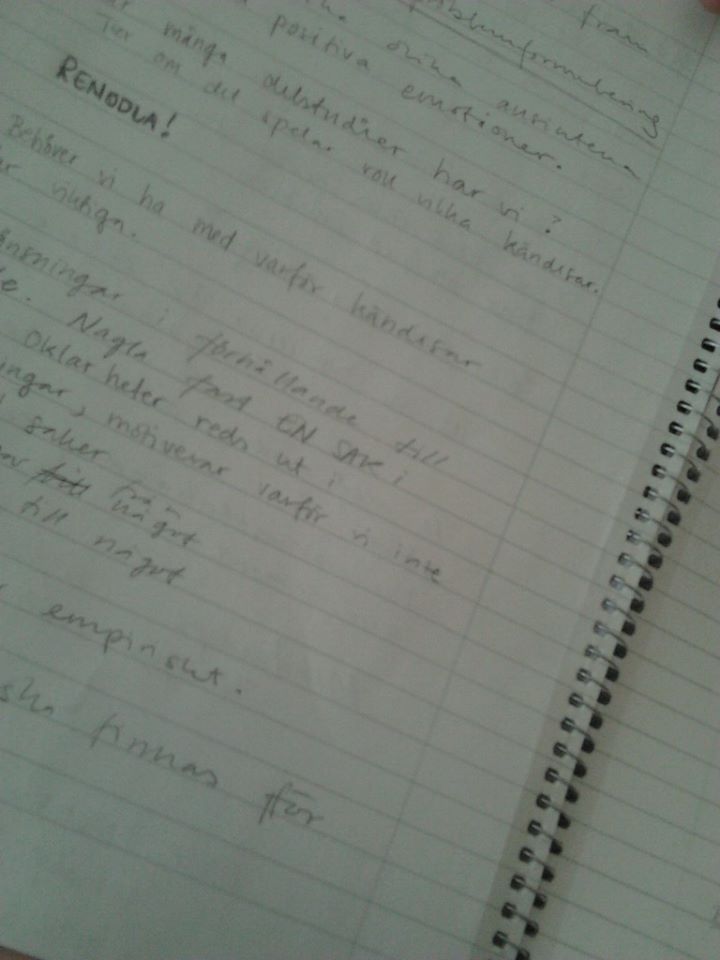 fram
problemformulering
olika ansikten
positiva emotioner.
många delstudier har vi?
om det spelar roll vilka kändisar.
RENODLA!
Behöver vi ha med varför kändisar
är viktiga.
i förhållande till
Nagla fast EN SAK i
Oklarheter reds ut i
motiverar varför vi inte
saker
från något
till något
empiriskt.
ska finnas för